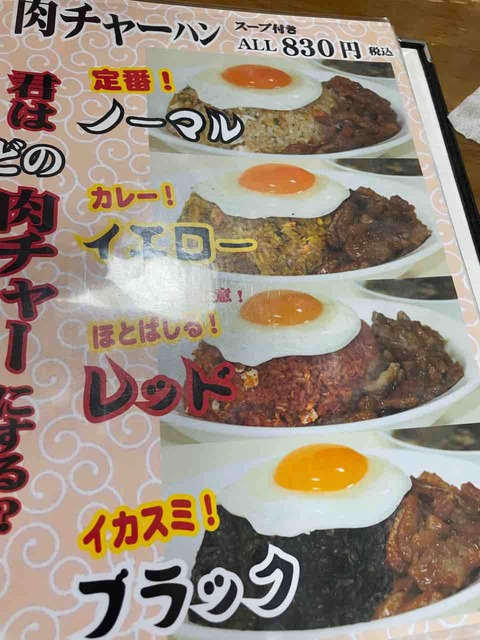 肉チャーハン
スープ付き
ALL 830円 税込
君は
どの
肉チャー
にする?
定番!
ノーマル
カレー!
イエロー
意!
ほとばしる!
レッド
イカスミ!
ブラック